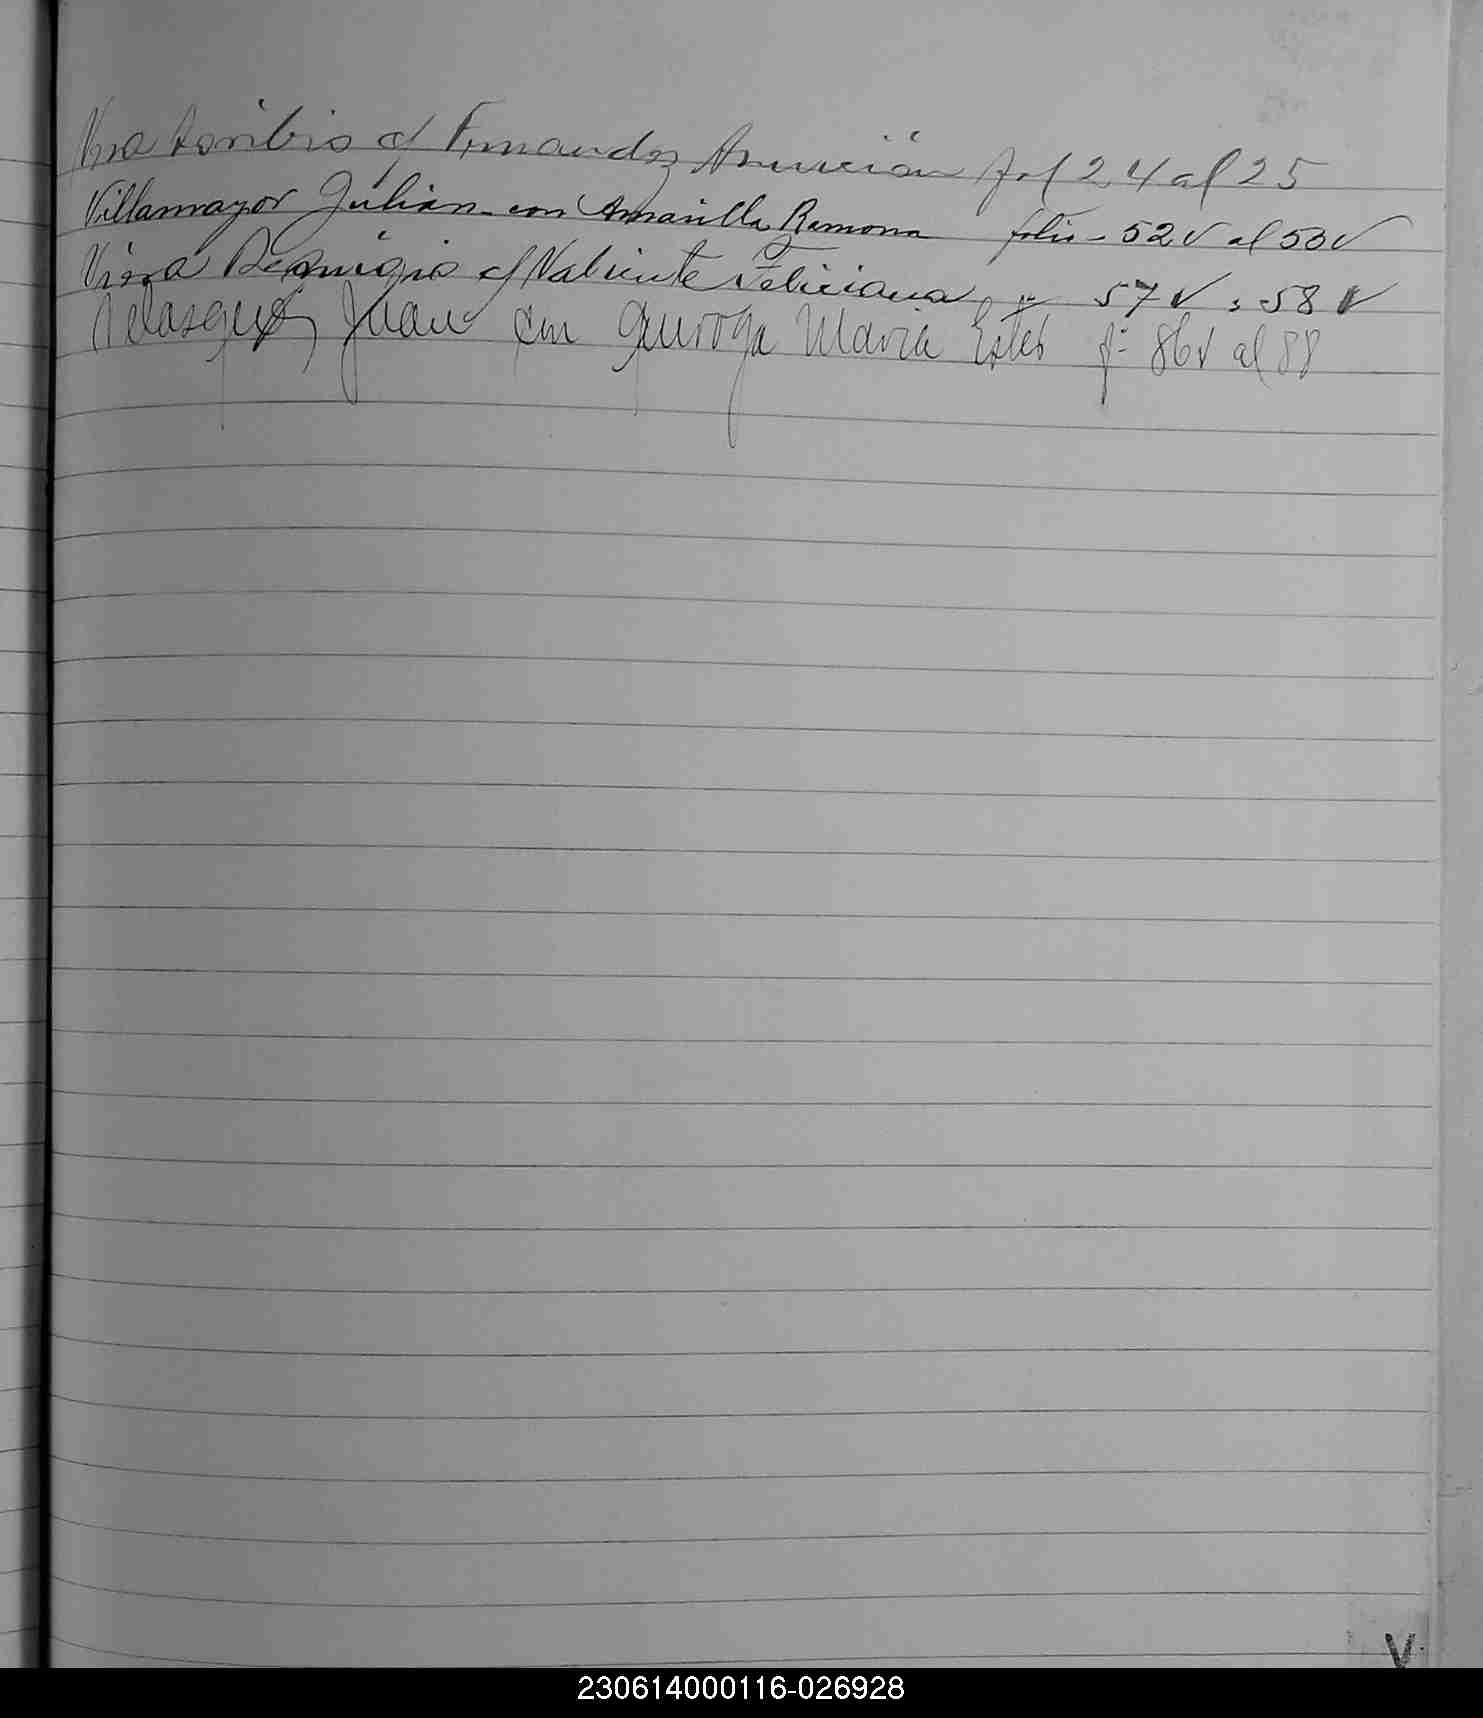 Vera Toribio c/ Fernandez Asunción fol 24 al 25
Villamayor Julián con Amarilla Ramona folio - 52 v al 53 v
Viera Remigio c/ Valiente Feliciana " 57 v " 58 v
Velasquez Juan con Quiroga Maria Ester f- 86v al 88
V
230614000116-026928